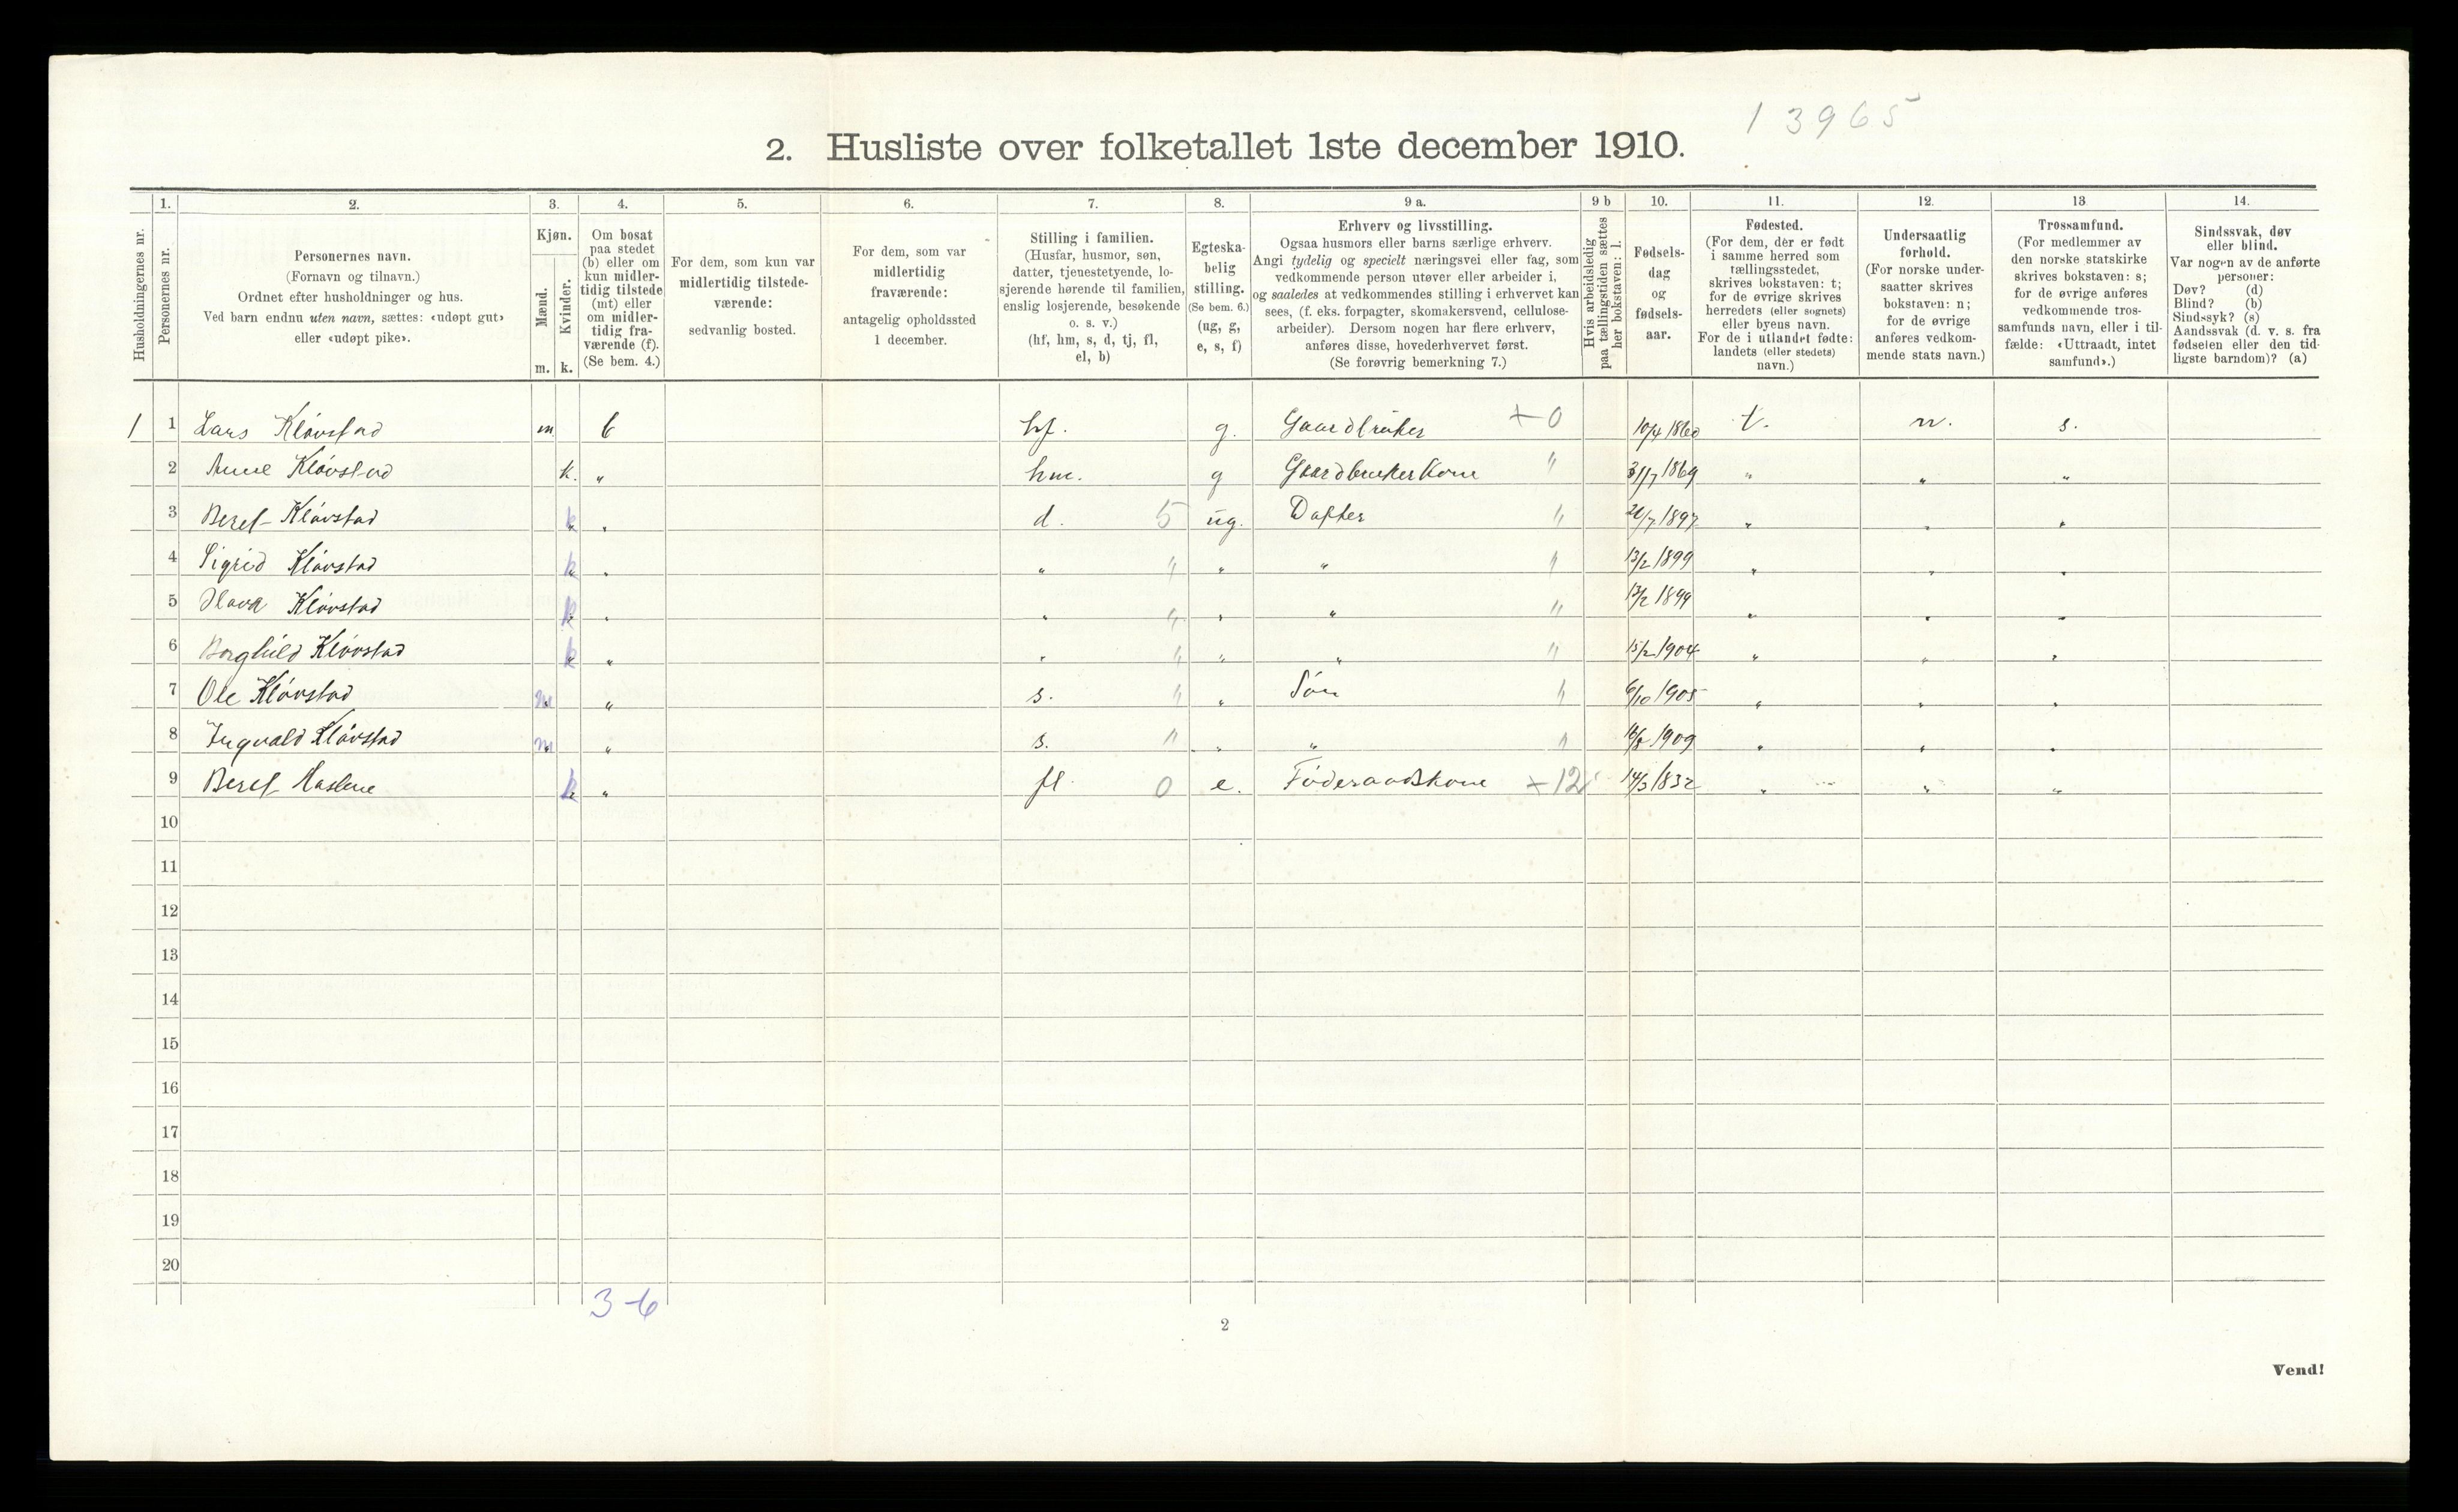 1 3965
2. Husliste over folketallet 1ste december 1910.
Husholdningernes nr.
1.
Personernes nr.
2.
Personernes navn.
(Fornavn og tilnavn.)
Ordnet efter husholdninger og hus.
Ved barn endnu uten navn, sættes: «udøpt gut»
eller «udøpt pike».
3.
Kjøn.
Mænd.
Kvinder.
m. k.
4.
Om bosat
paa stedet
(b) eller om
kun midler-
tidig tilstede
(mt) eller
om midler-
tidig fra-
værende (f).
(Se bem. 4.)
5.
For dem, som kun var
midlertidig tilstede-
værende:
sedvanlig bosted.
6.
For dem, som var
midlertidig
fraværende:
antagelig opholdssted
1 december.
7.
Stilling i familien.
(Husfar, husmor, søn,
datter, tjenestetyende, lo-
sjerende hørende til familien,
enslig losjerende, besøkende
o. s. v.)
(hf, hm, s, d, tj, fl,
el, b)
8.
Egteska-
belig
stilling.
(Se bem. 6.)
(ug, g,
e, s, f)
9 a.
Erhverv og livsstilling.
Ogsaa husmors eller barns særlige erhverv.
Angi tydelig og specielt næringsvei eller fag, som
vedkommende person utøver eller arbeider i,
og saaledes at vedkommendes stilling i erhvervet kan
sees, (f. eks. forpagter, skomakersvend, cellulose-
arbeider). Dersom nogen har flere erhverv,
anføres disse, hovederhvervet først.
(Se forøvrig bemerkning 7.)
9 b
Hvis arbeidsledig
paa tællingstiden sættes
her bokstaven: l.
10.
Fødsels-
dag
og
fødsels-
aar.
11.
Fødested.
(For dem, der er født
i samme herred som
tællingsstedet,
skrives bokstaven: t;
for de øvrige skrives
herredets (eller sognets)
eller byens navn.
For de i utlandet fødte:
landets (eller stedets)
navn.)
12.
Undersaatlig
forhold.
(For norske under-
saatter skrives
bokstaven: n;
for de øvrige
anføres vedkom-
mende stats navn.)
13
Trossamfund.
(For medlemmer av
den norske statskirke
skrives bokstaven: s;
for de øvrige anføres
vedkommende tros-
samfunds navn, eller i til-
fælde: «Uttraadt, intet
samfund».)
14.
Sindssvak, døv
eller blind.
Var nogen av de anførte
personer:
Døv? (d)
Blind? (b)
Sindssyk? (s)
Aandssvak (d. v. s. fra
fødselen eller den tid-
ligste barndom)? (a)
1 1 Lars Kløvstad m b hf. g. Gaardbruker +0 10/4 1860 t. n. s.
2 Anne Kløvstad k. " hm. g Gaardbruker Kone " 31/7 1869 " " "
3 Beret Kløvstad k " d. 5 ug. Datter " 1897 " " "
4 Sigrid Kløvstad k " " " " " " 13/2 1899 " " "
5 Kløvstad k " " " " " " 13/2 1899 " " "
6 Borghild Kløvstad k " " " " " " 15/2 1904 " " "
7 Ole Kløvstad m " s. " " Søn " 6/10 1905 " " "
8 Ingvald Kløvstad m " s. " " " " 1909 " " "
9 Beret Haslene k " fl. 0 e. Føderaadskone +12 14/3 1832 " " "
10
11
12
13
14
15
16
17
18
19
20
3-6
2
Vend!